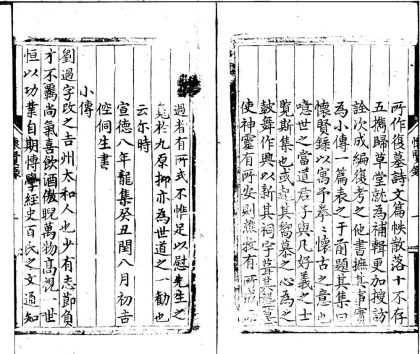 所作復墓詩文篇帙散落十不存
五攜歸草堂就為補輯更加搜訪
詮次成編復考之他書摭其事實
為小傳一篇表之于前題其集曰
懷賢錄以寓予拳拳懷古之意也
噫世之當道君子與凡好義之士
覽斯集也或起其嚮慕之心為之
鼓舞作興以新其祠宇葺其墓
使神靈有所安則樵牧有所
過者有所式不惟足以慰先生之
於九原抑亦為世道之一勸也
云尔時
宣德八年龍集癸丑閏八月初吉
倥侗生書
小傳
劉過字改之吉州太和人也少有志節負
才不羈尚氣喜飲酒傲睨萬物高視一世
恒以功業自期博學經史百氏之文通知
懷賢錄
懷賢錄